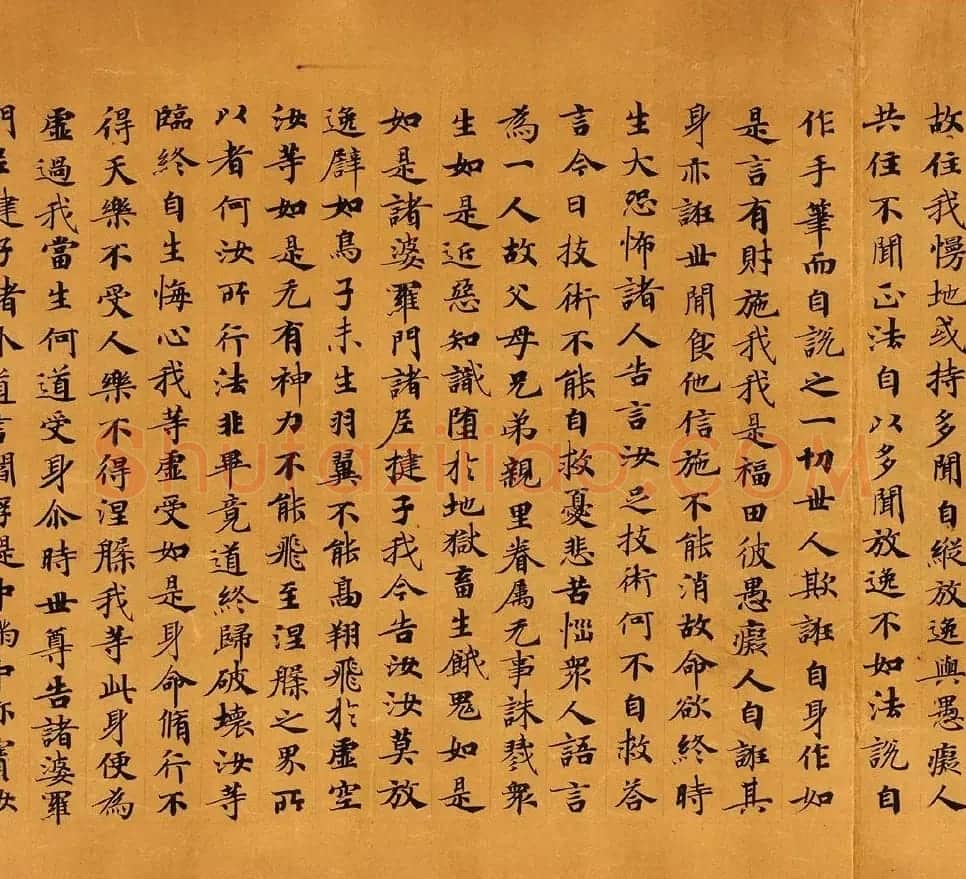 故住我慢地或持多聞自縱放逸與愚癡人
共住不聞正法自以多聞放逸不如法說自
作手筆而自說之一切世人欺誑自身作如
是言有財施我我是福田彼愚癡人自誑其
身亦誑世閒食他信施不能消故命欲終時
生大恐怖諸人告言汝足技術何不自救答
言今日技術不能自救憂悲苦惱眾人語言
為一人故父母兄弟親里眷属无事誅戮眾
生如是近惡知識墮於地獄畜生餓鬼如是
如是諸婆羅門諸尼揵子我今告汝汝莫放
逸譬如鳥子未生羽翼不能高翔飛於虛空
汝等如是无有神力不能飛至涅槃之界所
以者何汝所行法非畢竟道終歸破壞汝等
臨終自生悔心我等虛受如是身命脩行不
得天樂不受人樂不得涅槃我等此身便為
虛過我當生何道受身尒時世尊告諸婆羅
Shufaziliao.COM